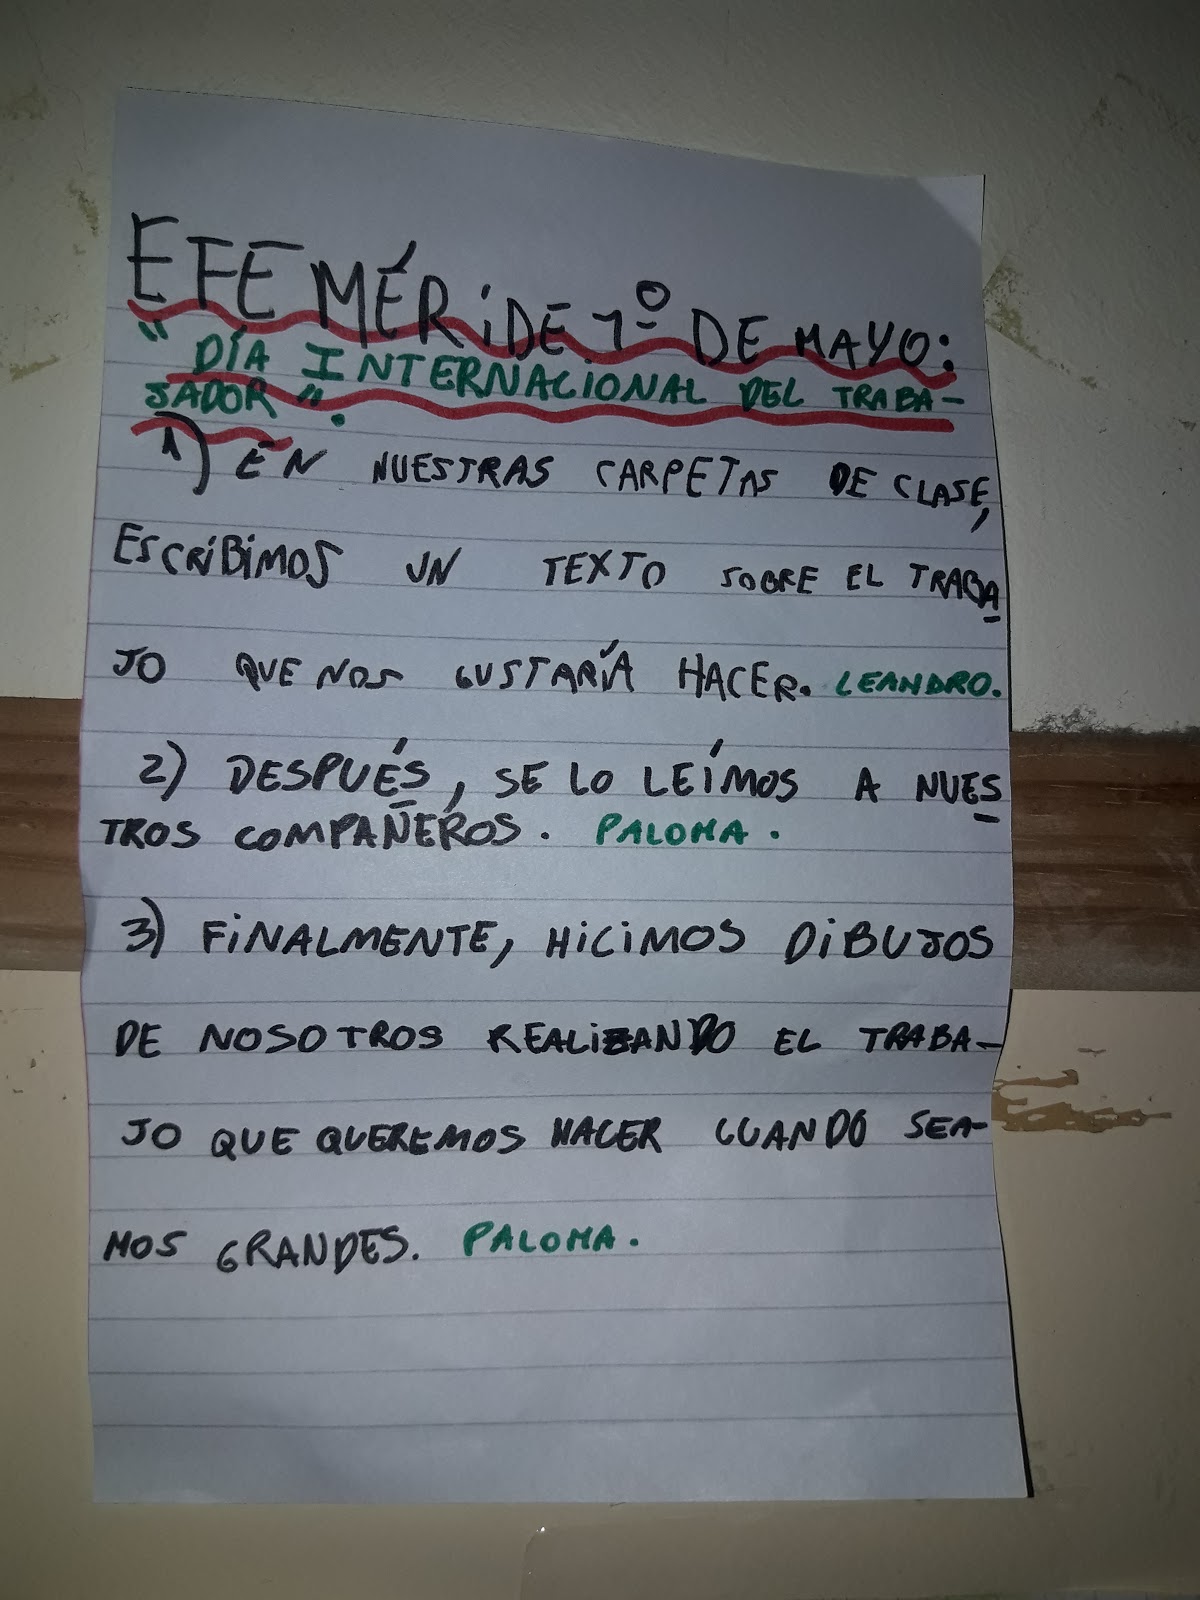 EFEMÉRIDE 1º DE MAYO:
" DÍA INTERNACIONAL DEL TRABA-
JADOR ".
1) EN NUESTRAS CARPETAS DE CLASE,
ESCRIBIMOS UN TEXTO SOBRE EL TRABA
JO QUE NOS GUSTARÍA HACER. LEANDRO.
2) DESPUÉS, SE LO LEÍMOS A NUES
TROS COMPAÑEROS. PALOMA.
3) FINALMENTE, HICIMOS DIBUJOS
DE NOSOTROS REALIZANDO EL TRABA-
JO QUE QUEREMOS HACER CUANDO SEA-
MOS GRANDES. PALOMA.